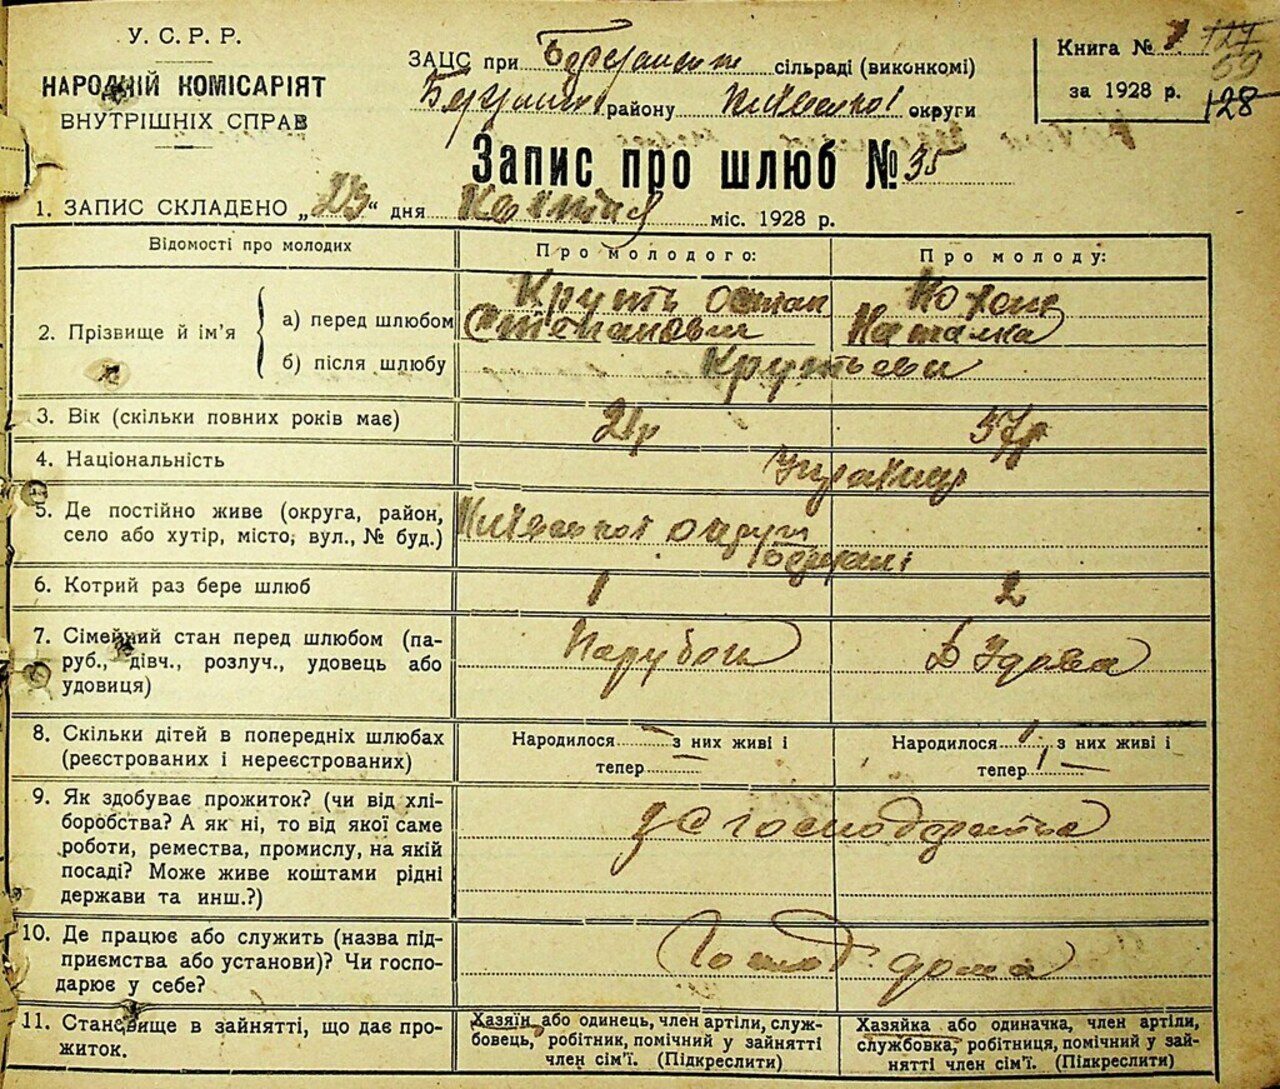 У. С. Р. Р.
НАРОДНІЙ КОМІСАРІЯТ
ВНУТРІШНІХ СПРАВ
ЗАЦС при сільраді (виконкомі)
району округи
Книга № 1 127
59
за 1928 р. 128
Запис про шлюб № 35
1. ЗАПИС СКЛАДЕНО „23“ дня Квітня міс. 1928 р.
Відомості про молодих
Про молодого:
Про молоду:
2. Прізвище й ім'я
а) перед шлюбом
Круть Остап
Степанович
Кохан
Наталка
б) після шлюбу
Крутьеви
3. Вік (скільки повних років має)
21р
37р
4. Національність
Українці
5. Де постійно живе (округа, район,
село або хутір, місто, вул., № буд.)
Київської округи
6. Котрий раз бере шлюб
1
2
7. Сімейний стан перед шлюбом (па-
руб., дівч., розлуч., удовець або
удовиця)
Парубок
Вдова
8. Скільки дітей в попередніх шлюбах
(реєстрованих і нереєстрованих)
Народилося — з них живі і
тепер —
Народилося 1 з них живі і
тепер 1 —
9. Як здобуває прожиток? (чи від хлі-
боробства? А як ні, то від якої саме
роботи, ремества, промислу, на якій
посаді? Може живе коштами рідні
держави та инш.?)
з с господарства
10. Де працює або служить (назва під-
приємства або установи)? Чи госпо-
дарює у себе?
Господ. дома
11. Становище в зайнятті, що дає про-
житок.
Хазяїн або одинець, член артіли, служ-
бовець, робітник, помічний у зайнятті
член сім'ї. (Підкреслити)
Хазяйка або одиначка, член артіли,
службовка, робітниця, помічний у зай-
нятті член сім'ї. (Підкреслити)